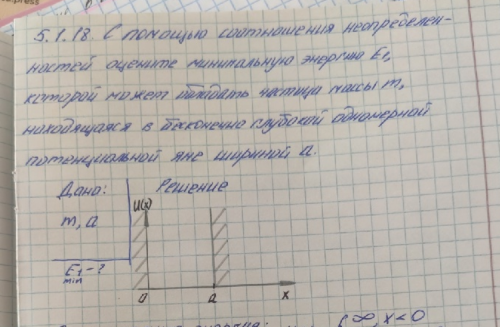 5.1.18. С помощью соотношения неопределен-
ностей оцените минимальную энергию E1,
которой может обладать частица массы m,
находящаяся в бесконечно глубокой одномерной
потенциальной яме шириной a.
Дано: Решение
m, a U(x)
E1 - ?
min
0 a x
∞ x<0